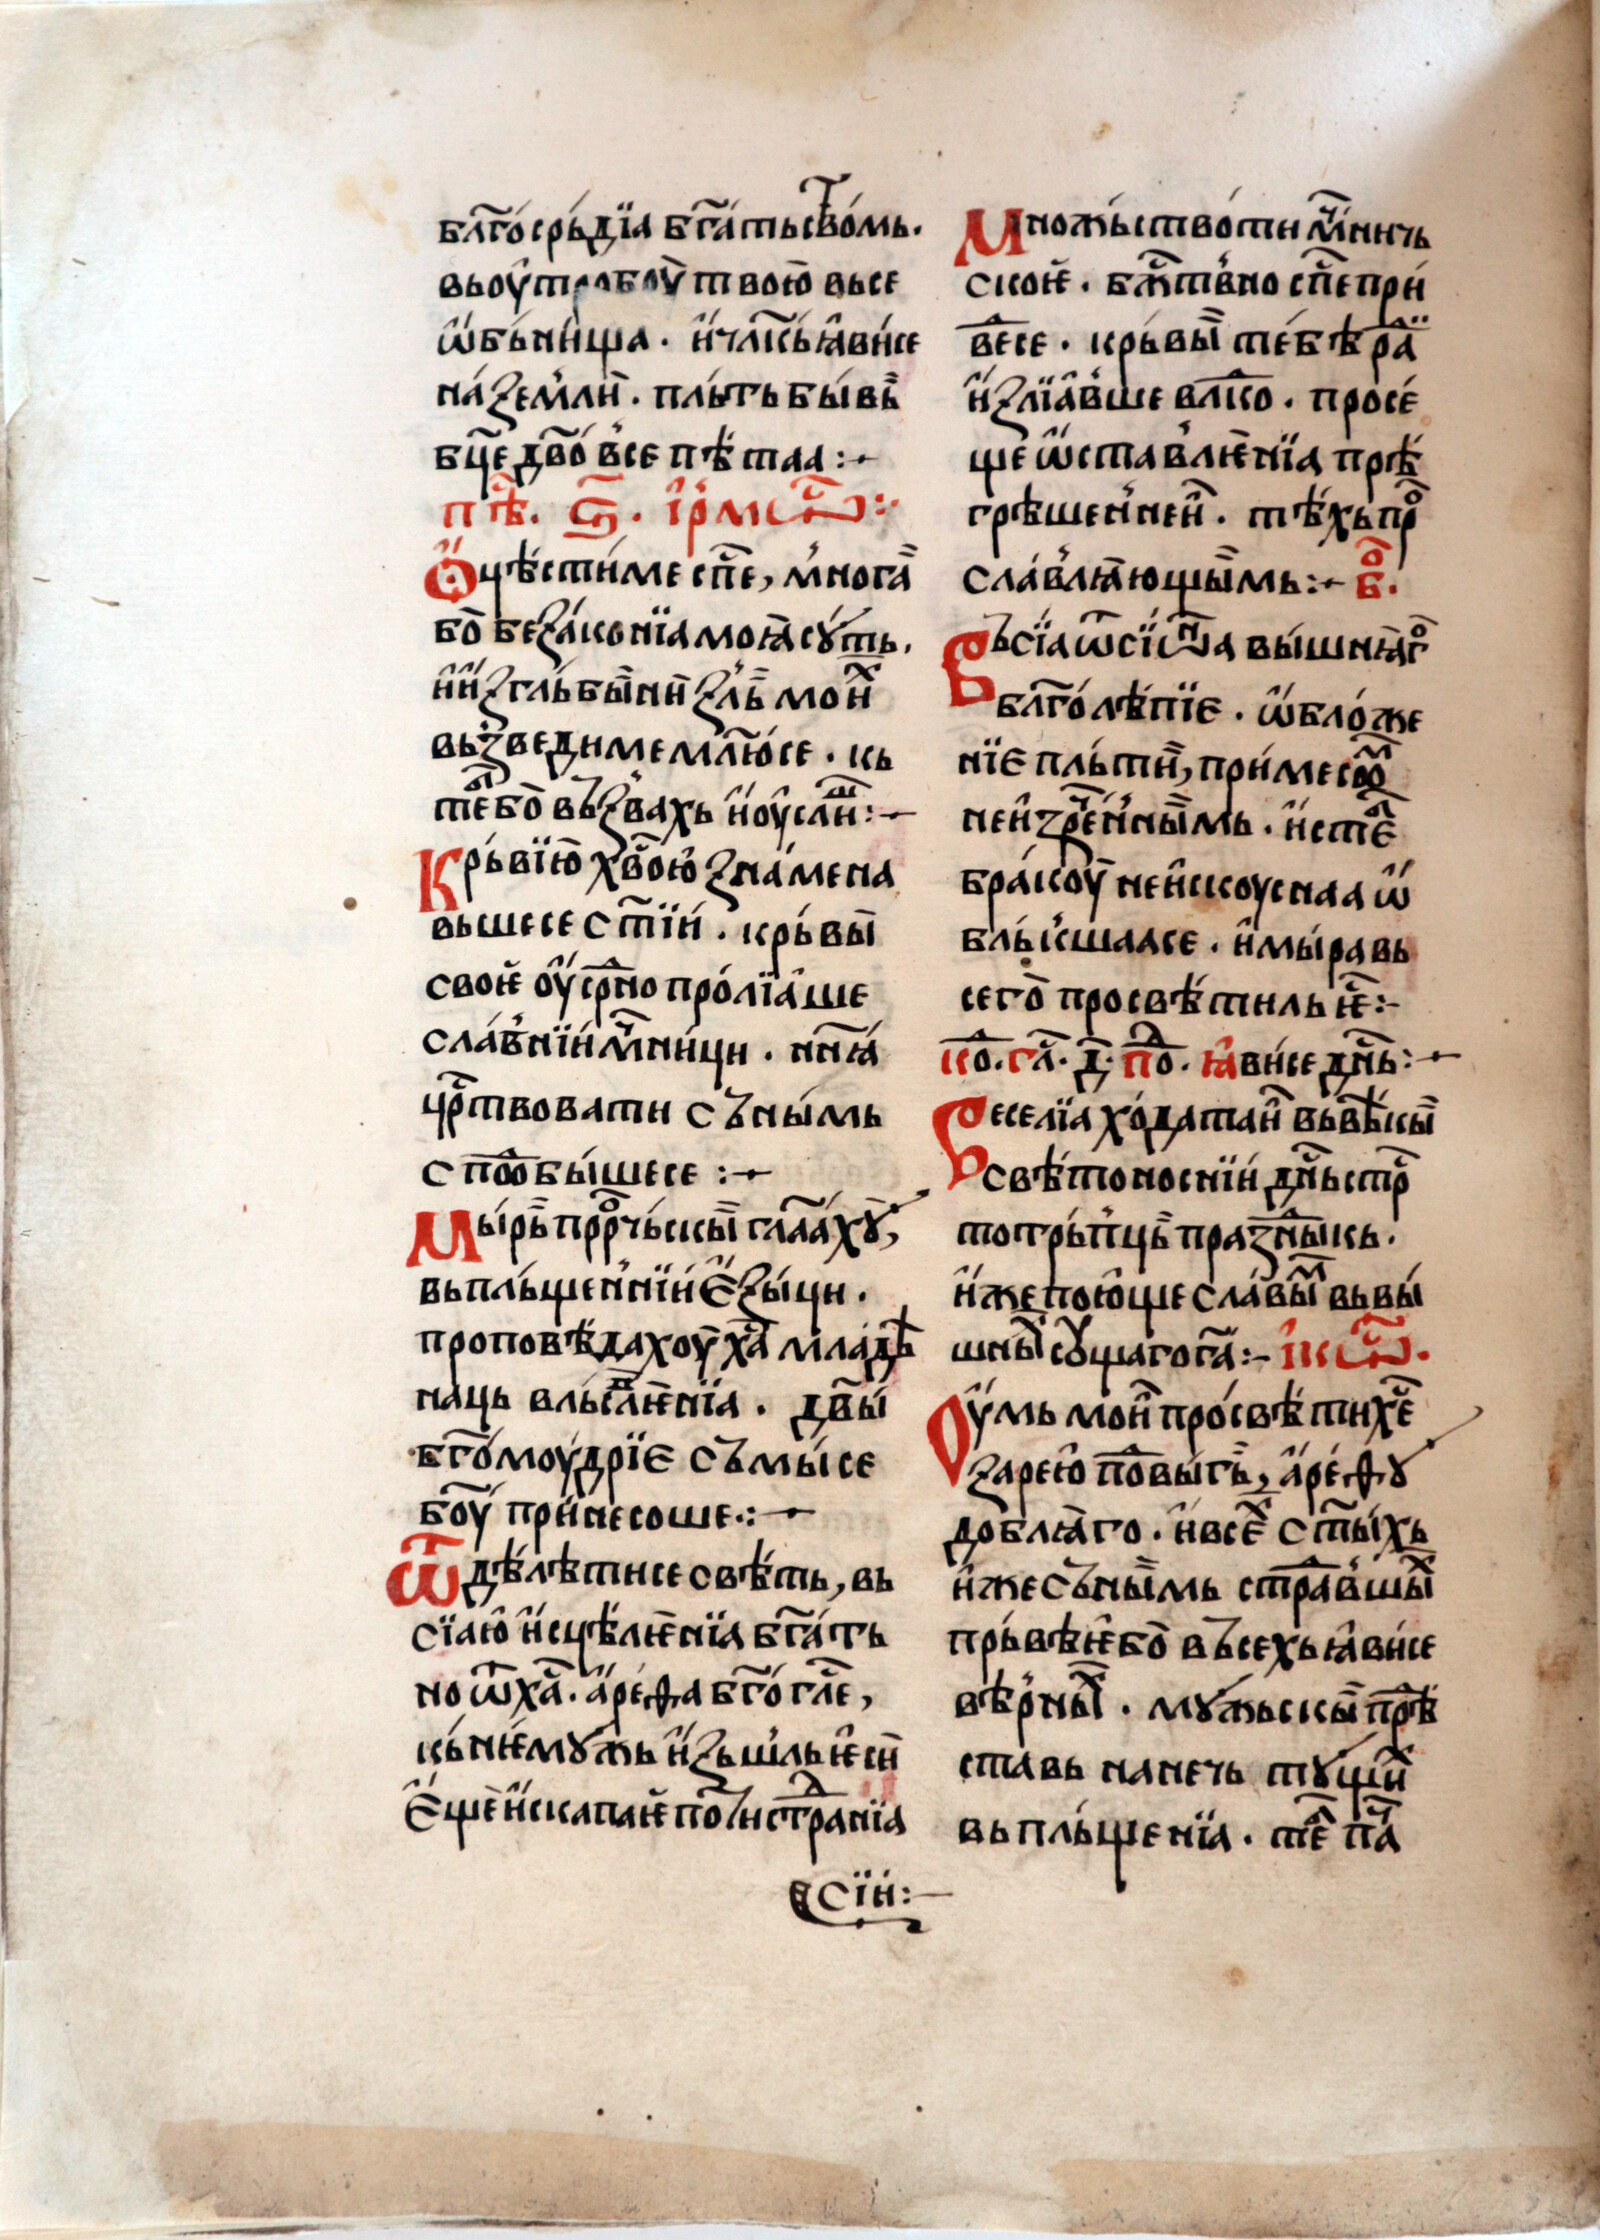 блг҃осрь́дїа бг҃а́тьств́омь.
вьоу҆тробоу̀ твою̀ вьсе
ѡ҆бь́ни́ща . и҆ чл҃кь ꙗ҆ви́се
на́ земл҄ѝ . пль́ть бы́вь̀
бц҃е дв҃о в҄се пѣ́таа :·
пѣ̑ . ѕ҃ . і҆рмѡ҃с :·
Ѻ҆цѣ́сти́ме сп҃се , м҄нога̀
бо̀ беза́конїа моꙗ̀ сꙋ́ть .
и҆ и҆згль́бы́ни ѕль̀ мои̑х
вь́зведи ме мл҃ю́се . кь
те҃б бо̀ вь҄звахь и҆ оу҆слы̑ши :·
Крь́вїю̀ хв҃ою҆ зна́мена
вьшесе ст҃їи́ . крь́вы̀
свое҆ оу҆срⷣно про́лїа҆ше
сла́в҄нїи́ мч҃ни́ци . нн҃ꙗ́
црⷭ҇твовати съны́мь
спⷣобы́шесе :·
Мы́рь̀ прⷪ҇рчь́скы̀ гл҃а́ хꙋ̀ ,
вьпль́щен҄нїи́ є҆зы́ци .
проповѣ́дахоу̀ ха҃ мла́дѣ
наць вльсл҃ѥнїа . дв҃ы́
бг҃омоу́дрїє съмы́се
бо҃у при́несоше .: ·
Ѿдѣ́лѣтисе свѣ́ть , вь
сїаю҆ и҆сцѣ́лѥ̀нїа бг҃а́ть
но ѿ ха҃ . а҆ре́ѳа бг҃о́гл҃е ,
кь́нѥ̀мꙋжь и҆зьш҄ль ѥ҆сѝ
є҆ще и҆скапае҆ по҃ⷣ и стрⷣанїа
сїи́ :·
Мно́жь́ство ти мч҃ничь
скоѥ̀ . бж҃тв҄но сп҃се при́
ве҃се . крь́вы̀ те́бѣ ра̑ⷣ
и҆злїа҆в҄ше влⷣко . просе́
ще ѡ҆став҄лѥ̀нїа прѣ́
грѣшен҄неи̑ . тѣ́хь прⷪ
сла́в҄лꙗ҆ющы̀мь :· бⷪ҇.
Въсїа ѿ сїѡⷩ҇а вы́шнꙗ̀гⷪ
блг҃олѣ́пїє . ѡ҆бло́же
нїє пль́ти̑ , при́ме сⷪ҇
неи҆зрⷱ҇ен҄ны̀мь . и҆ стⷣє
бра́коу̀ неи҆скоуснаа ѡ҆
бль́к҄шаасе . и҆ мы́ра вь
сего̀ просвѣ́тиль ѥ҆с :·
ко̑ . гл҃ . д҃ . по̑ⷣ . ꙗ҆ви́се дн҃ь :·
Веселїа хо́датаи̑ вь в҃ѣкы̀
свѣ́тоноснїи́ дн҃ь стрⷭ҇
тотрь́п҄ць̀ пра́зⷣныкь .
и҆же пою҆ще сла́вы̑ⷨ вьвы́
шны̑ⷯ сꙋщаго га҃ :· і҆кѡ҃с .
Оу҆мь мои̑ про́свѣти хс҃е
зарею̀ пⷣовы́гь̀ , а҆ре́ѳꙋ
доблꙗ̀го . и҆ все̑ⷯ ст҃ы́хь
и҆же съны̀мь стрⷣав҄шы̑ⷯ
прь́вѣѥ҆ бо̀ въсехь ꙗ҆ви́се
вѣ́р҄ны̑ⷯ . мꙋжьскы̀ прѣⷣ
ставь на мечь тꙋщи̑ⷯ
вь пль́щенїа . тⷨє пⷱ҇а